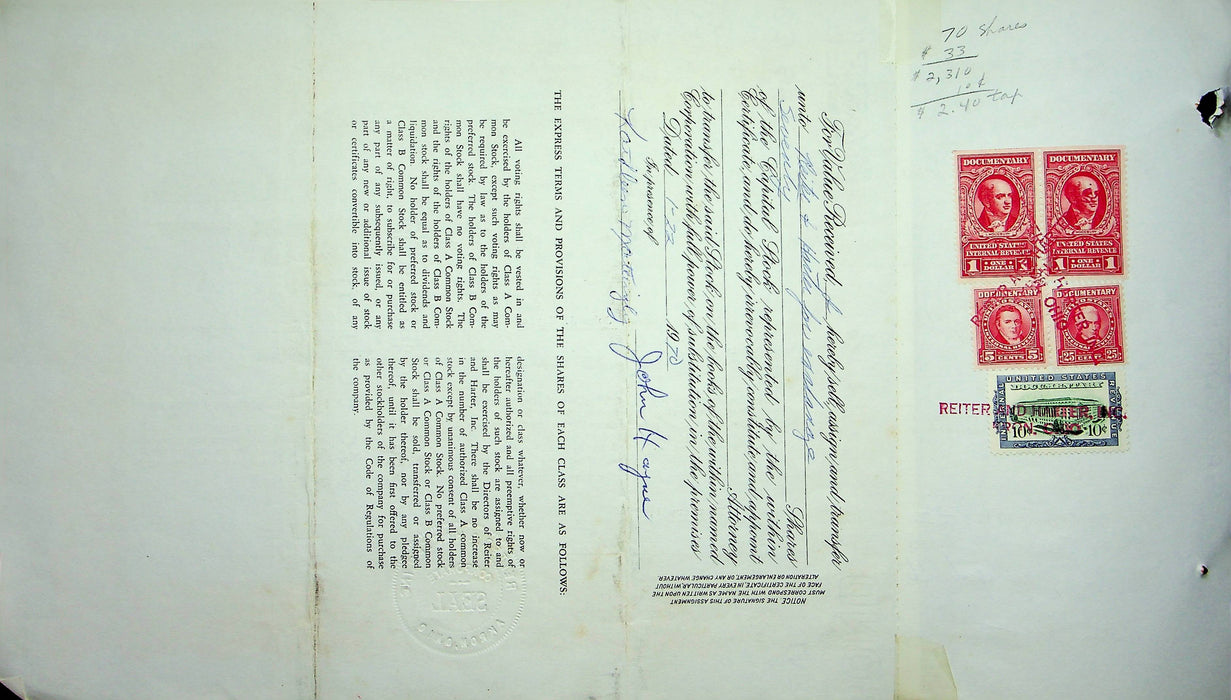 70 shares
$ 33
$ 2,310
10¢
$ 2.40 tax
DOCUMENTARY
UNITED STATES
INTERNAL REVENUE
1 ONE DOLLAR 1
DOCUMENTARY
UNITED STATES
INTERNAL REVENUE
1 ONE DOLLAR 1
DOCUMENTARY
5 CENTS 5
DOCUMENTARY
25 CENTS 25
UNITED STATES
DOCUMENTARY
10¢ 10¢
REITER AND HARTER, INC.
For Value Received, I hereby sell, assign and transfer
unto
Seventy Shares
of the Capital Stock represented by the within
Certificate, and do hereby irrevocably constitute and appoint
Attorney
to transfer the said Stock on the books of the within named
Corporation with full power of substitution in the premises
Dated 1-22 1970
In presence of
John Hague
NOTICE. THE SIGNATURE OF THIS ASSIGNMENT
MUST CORRESPOND WITH THE NAME AS WRITTEN UPON THE
FACE OF THE CERTIFICATE, IN EVERY PARTICULAR, WITHOUT
ALTERATION OR ENLARGEMENT, OR ANY CHANGE WHATEVER.
THE EXPRESS TERMS AND PROVISIONS OF THE SHARES OF EACH CLASS ARE AS FOLLOWS:
All voting rights shall be vested in and
be exercised by the holders of Class A Com-
mon Stock, except such voting rights as may
be required by law as to the holders of the
preferred stock. The holders of Class B Com-
mon Stock shall have no voting rights. The
rights of the holders of Class A Common Stock
and the rights of the holders of Class B Com-
mon stock shall be equal as to dividends and
liquidation. No holder of preferred stock or
Class B Common Stock shall be entitled as
a matter of right, to subscribe for or purchase
any part of any subsequently issued, or any
part of any new or additional issue of stock
or certificates convertible into stock, of any
designation or class whatever, whether now or
hereafter authorized and all preemptive rights of
the holders of such stock are assigned to and
shall be exercised by the Directors of Reiter
and Harter, Inc. There shall be no increase
in the number of authorized Class A common
stock except by unanimous consent of all holders
of Class A Common Stock. No preferred stock
or Class A Common Stock or Class B Common
Stock shall be sold, transferred or assigned
by the holder thereof, nor by any pledgee
thereof, until it has been first offered to the
other stockholders of the company for purchase
as provided by the Code of Regulations of
the company.
SEAL